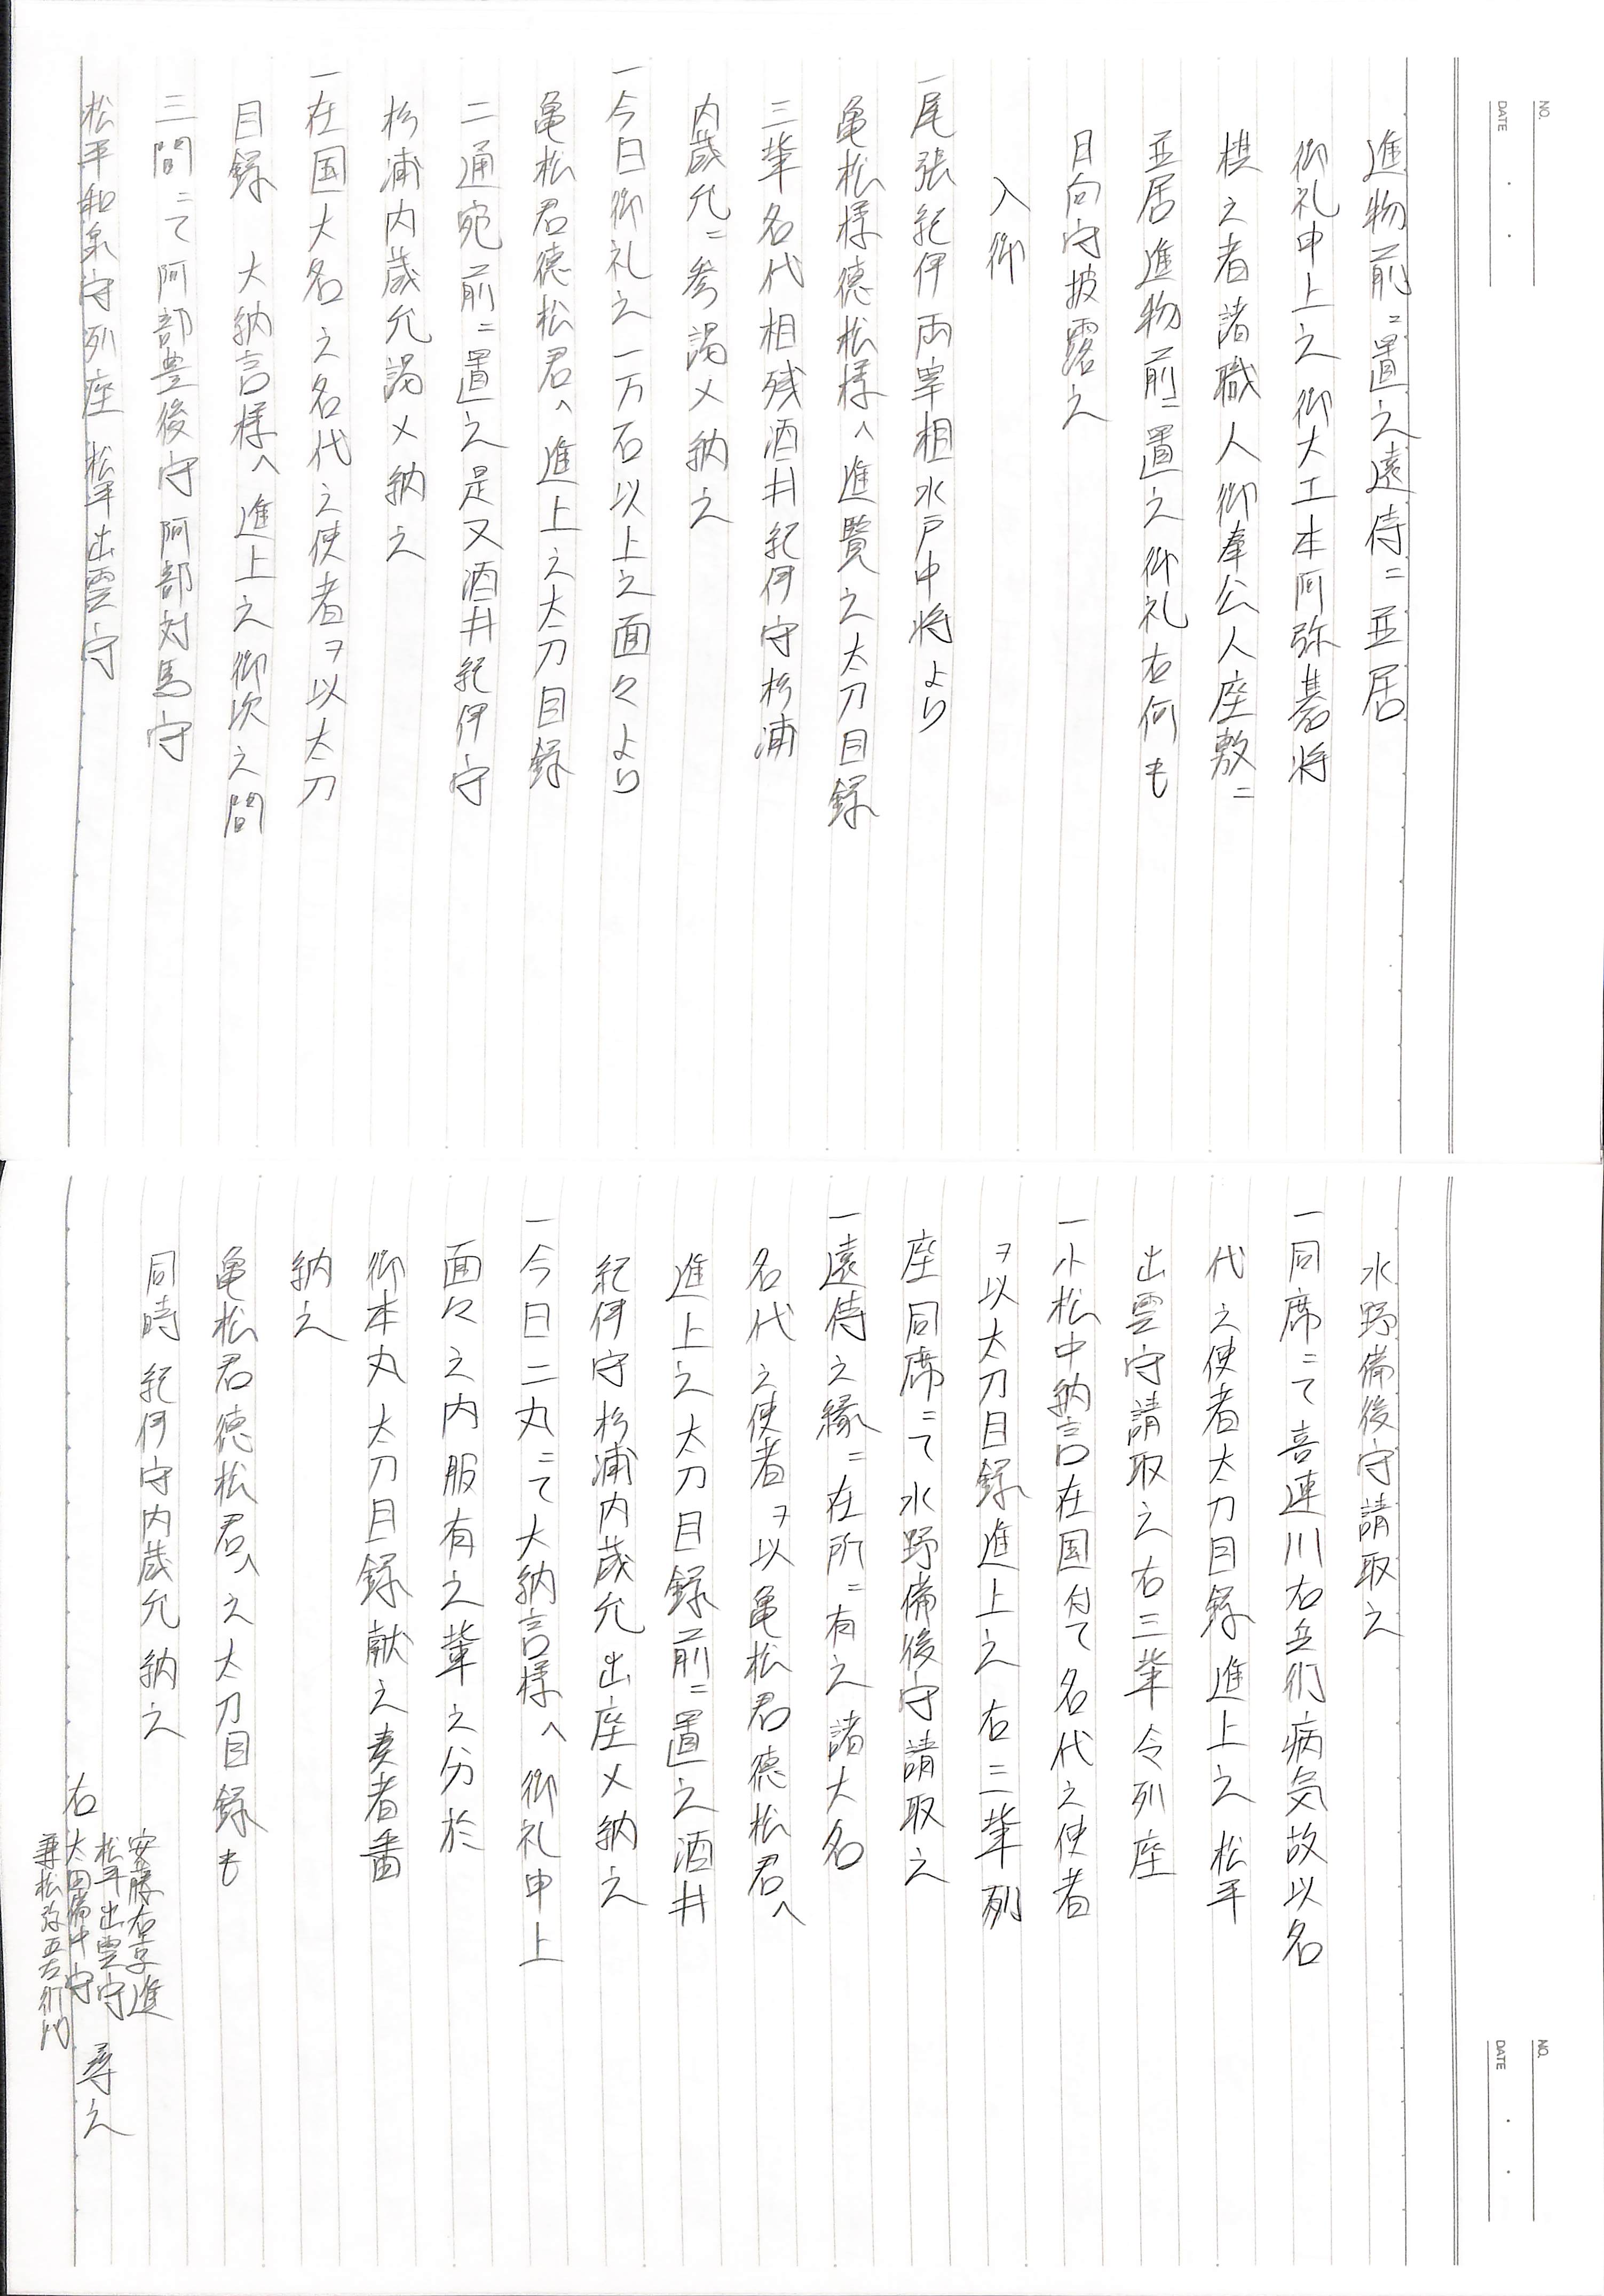 NO.
DATE
進物前ニ置之遠侍ニ並居
御礼申上之御大工本阿弥碁将
棋之者諸職人御奉公人座敷ニ
並居進物前ニ置之御礼右何も
日向守披露之
入御
一尾張紀伊両宰相水戸中将より
亀松様徳松様へ進覧之太刀目録
三輩名代相残酒井紀伊守杉浦
内蔵允ニ参謁〆納之
一今日御礼之一万石以上之面々より
亀松君徳松君へ進上之太刀目録
二通宛前ニ置之是又酒井紀伊守
杉浦内蔵允謁〆納之
一在国大名之名代之使者ヲ以太刀
目録 大納言様へ進上之御次之間
三間ニて阿部豊後守阿部対馬守
松平和泉守列座 松平出雲守
NO.
DATE
水野備後守請取之
一同席ニて喜連川右兵衛病気故以名
代之使者太刀目録進上之松平
出雲守請取之右三輩令列座
一小松中納言在国付て名代之使者
ヲ以太刀目録進上之右三輩列
座同席ニて水野備後守請取之
一遠侍之縁ニ在所ニ有之諸大名
名代之使者ヲ以亀松君徳松君へ
進上之太刀目録前ニ置之酒井
紀伊守杉浦内蔵允出座〆納之
一今日二丸ニて大納言様へ御礼申上
面々之内服有之輩之分於
御本丸太刀目録献之奏者番
納之
亀松君徳松君へ之太刀目録も
同時紀伊守内蔵允納之
安藤右京進
松平出雲守
右 太田備中守 尋之
兼松弥五左衛門